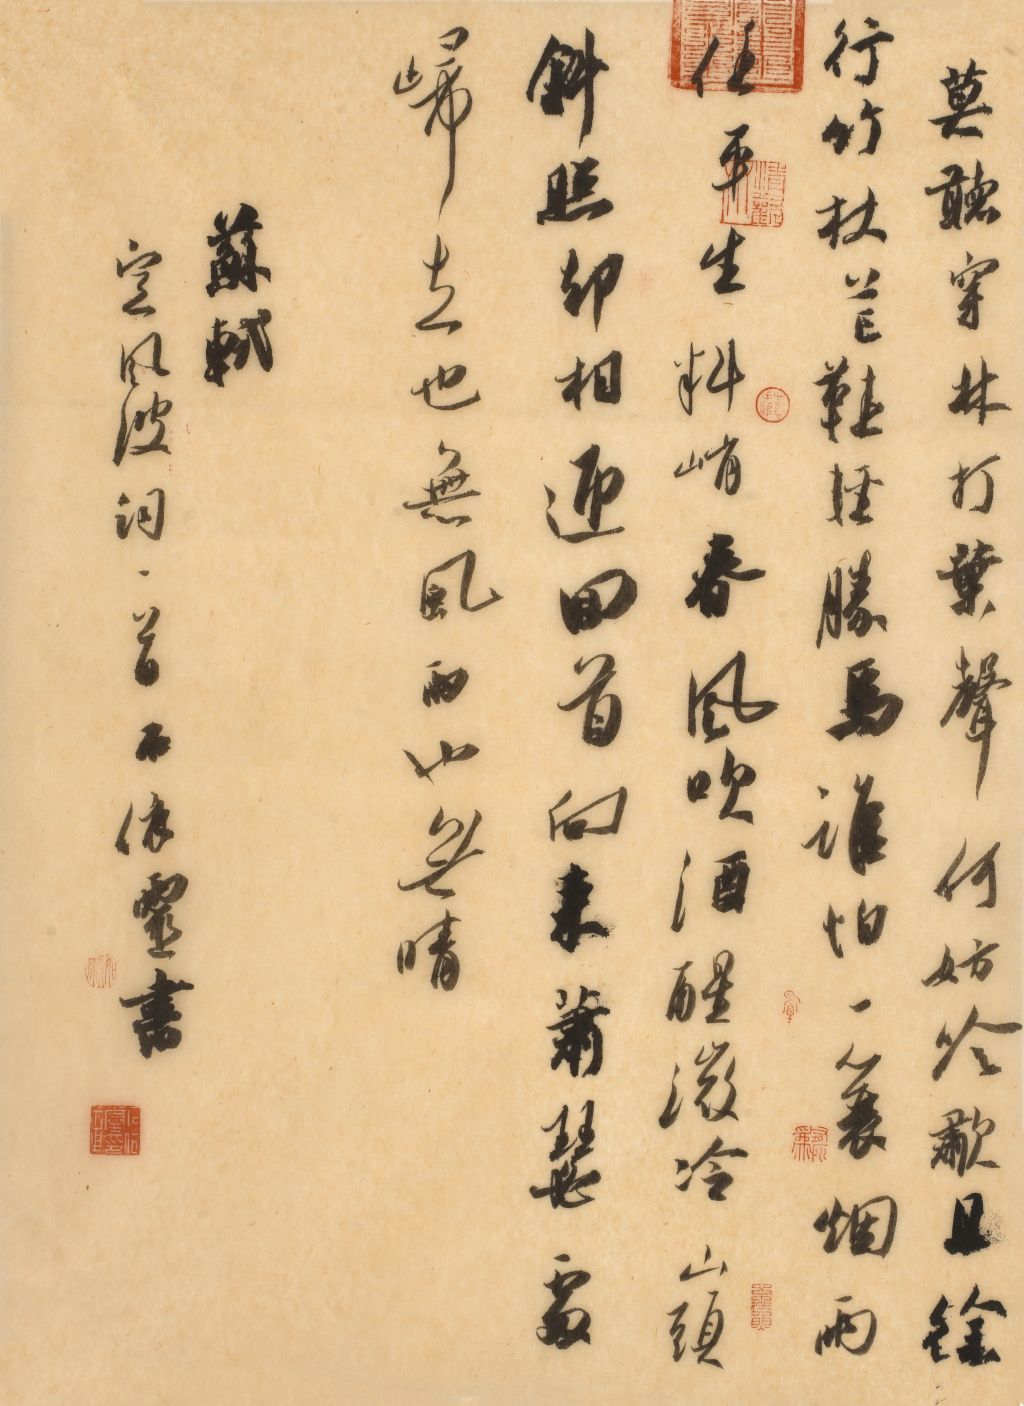 莫聽穿林打葉聲何妨吟歗且徐
行竹杖芒鞋輕勝馬誰怕一蓑烟雨
任平生料峭春風吹酒醒微冷山頭
斜照却相迎回首向來蕭瑟處
歸去也無風雨也無晴
蘇軾
定風波詞一首靈書